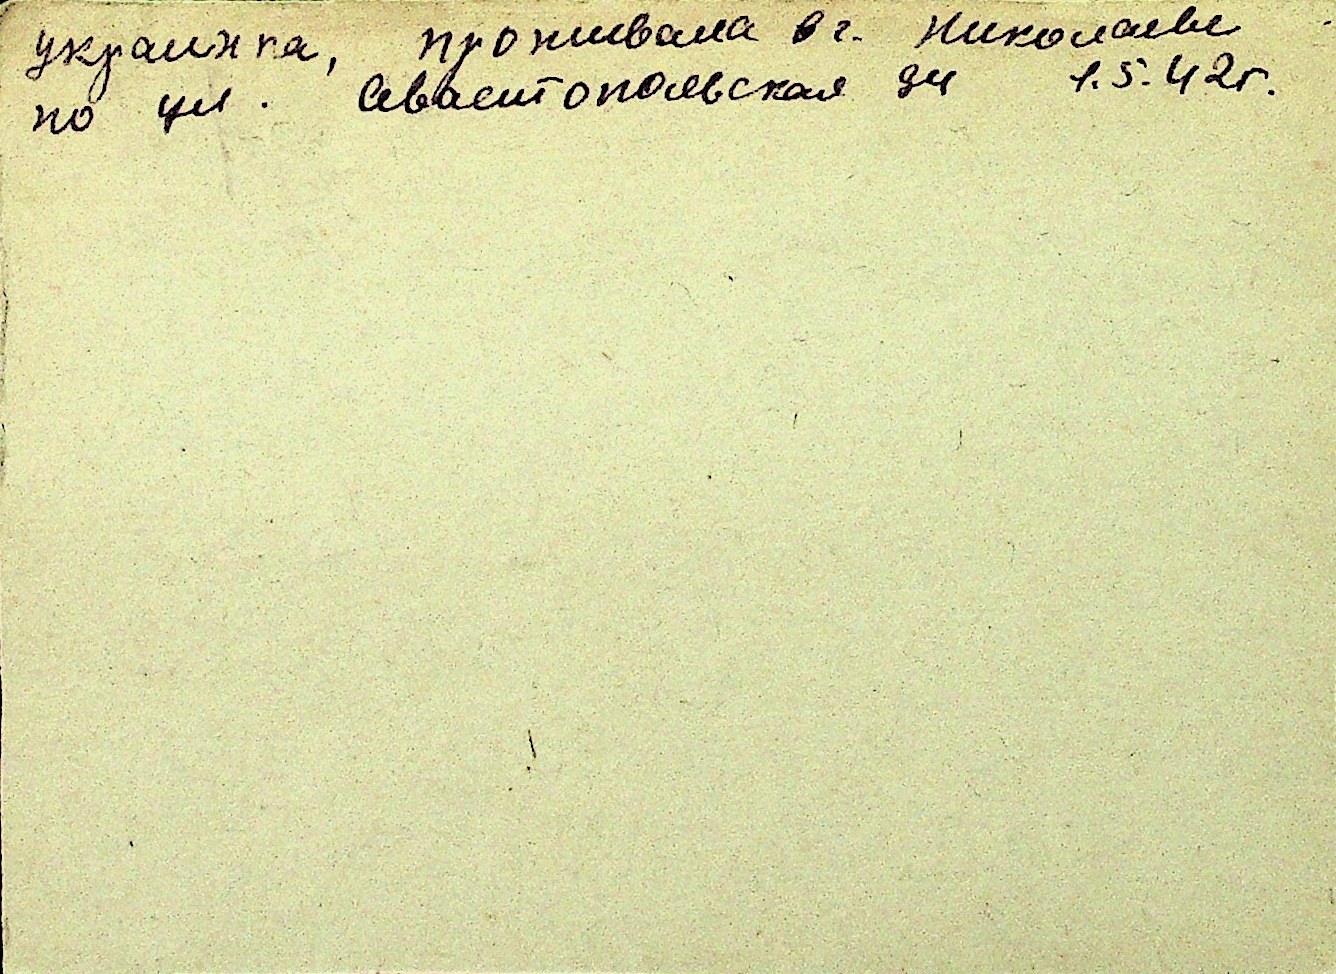 украинка, проживала в г. Николаеве
по ул. Севастопольская 1.5.42г.